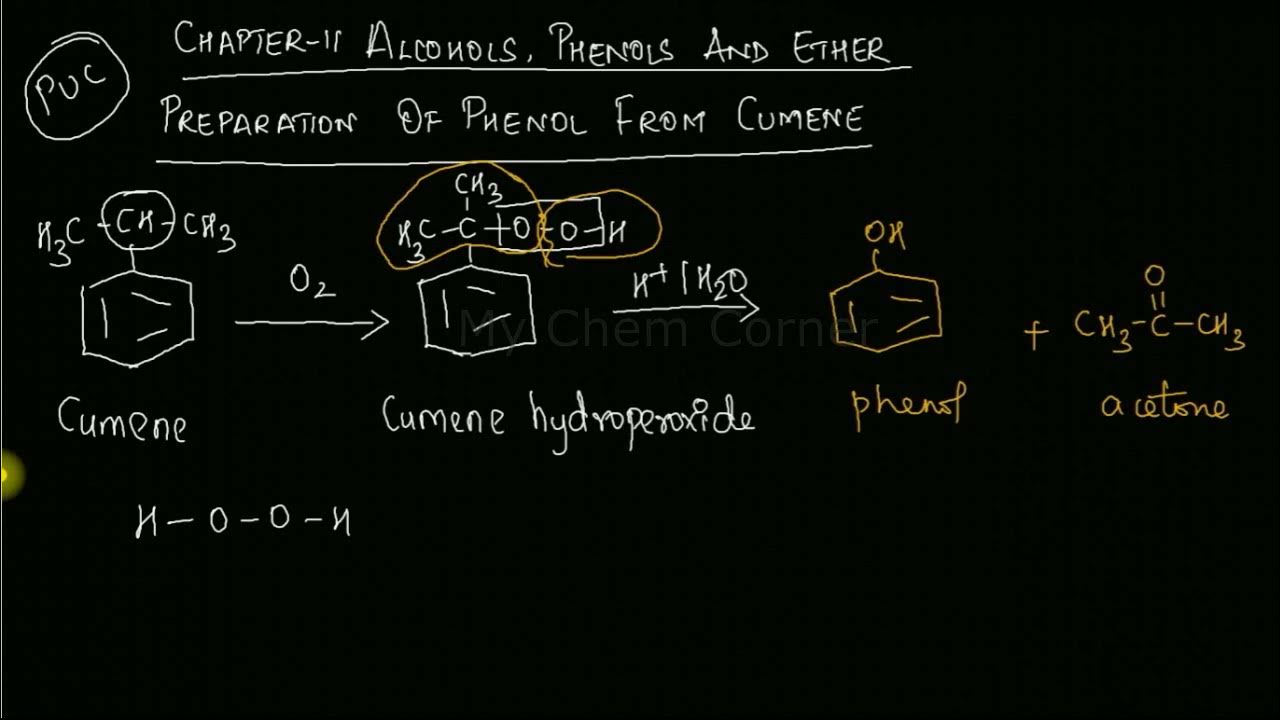 PUC
CHAPTER-11 ALCOHOLS, PHENOLS AND ETHER
PREPARATION OF PHENOL FROM CUMENE
H3C-CH-CH3
O2
CH3
H3C-C-O-O-H
H+/H2O
OH
+
O
CH3-C-CH3
My Chem Corner
Cumene
Cumene hydroperoxide
phenol
acetone
H-O-O-H